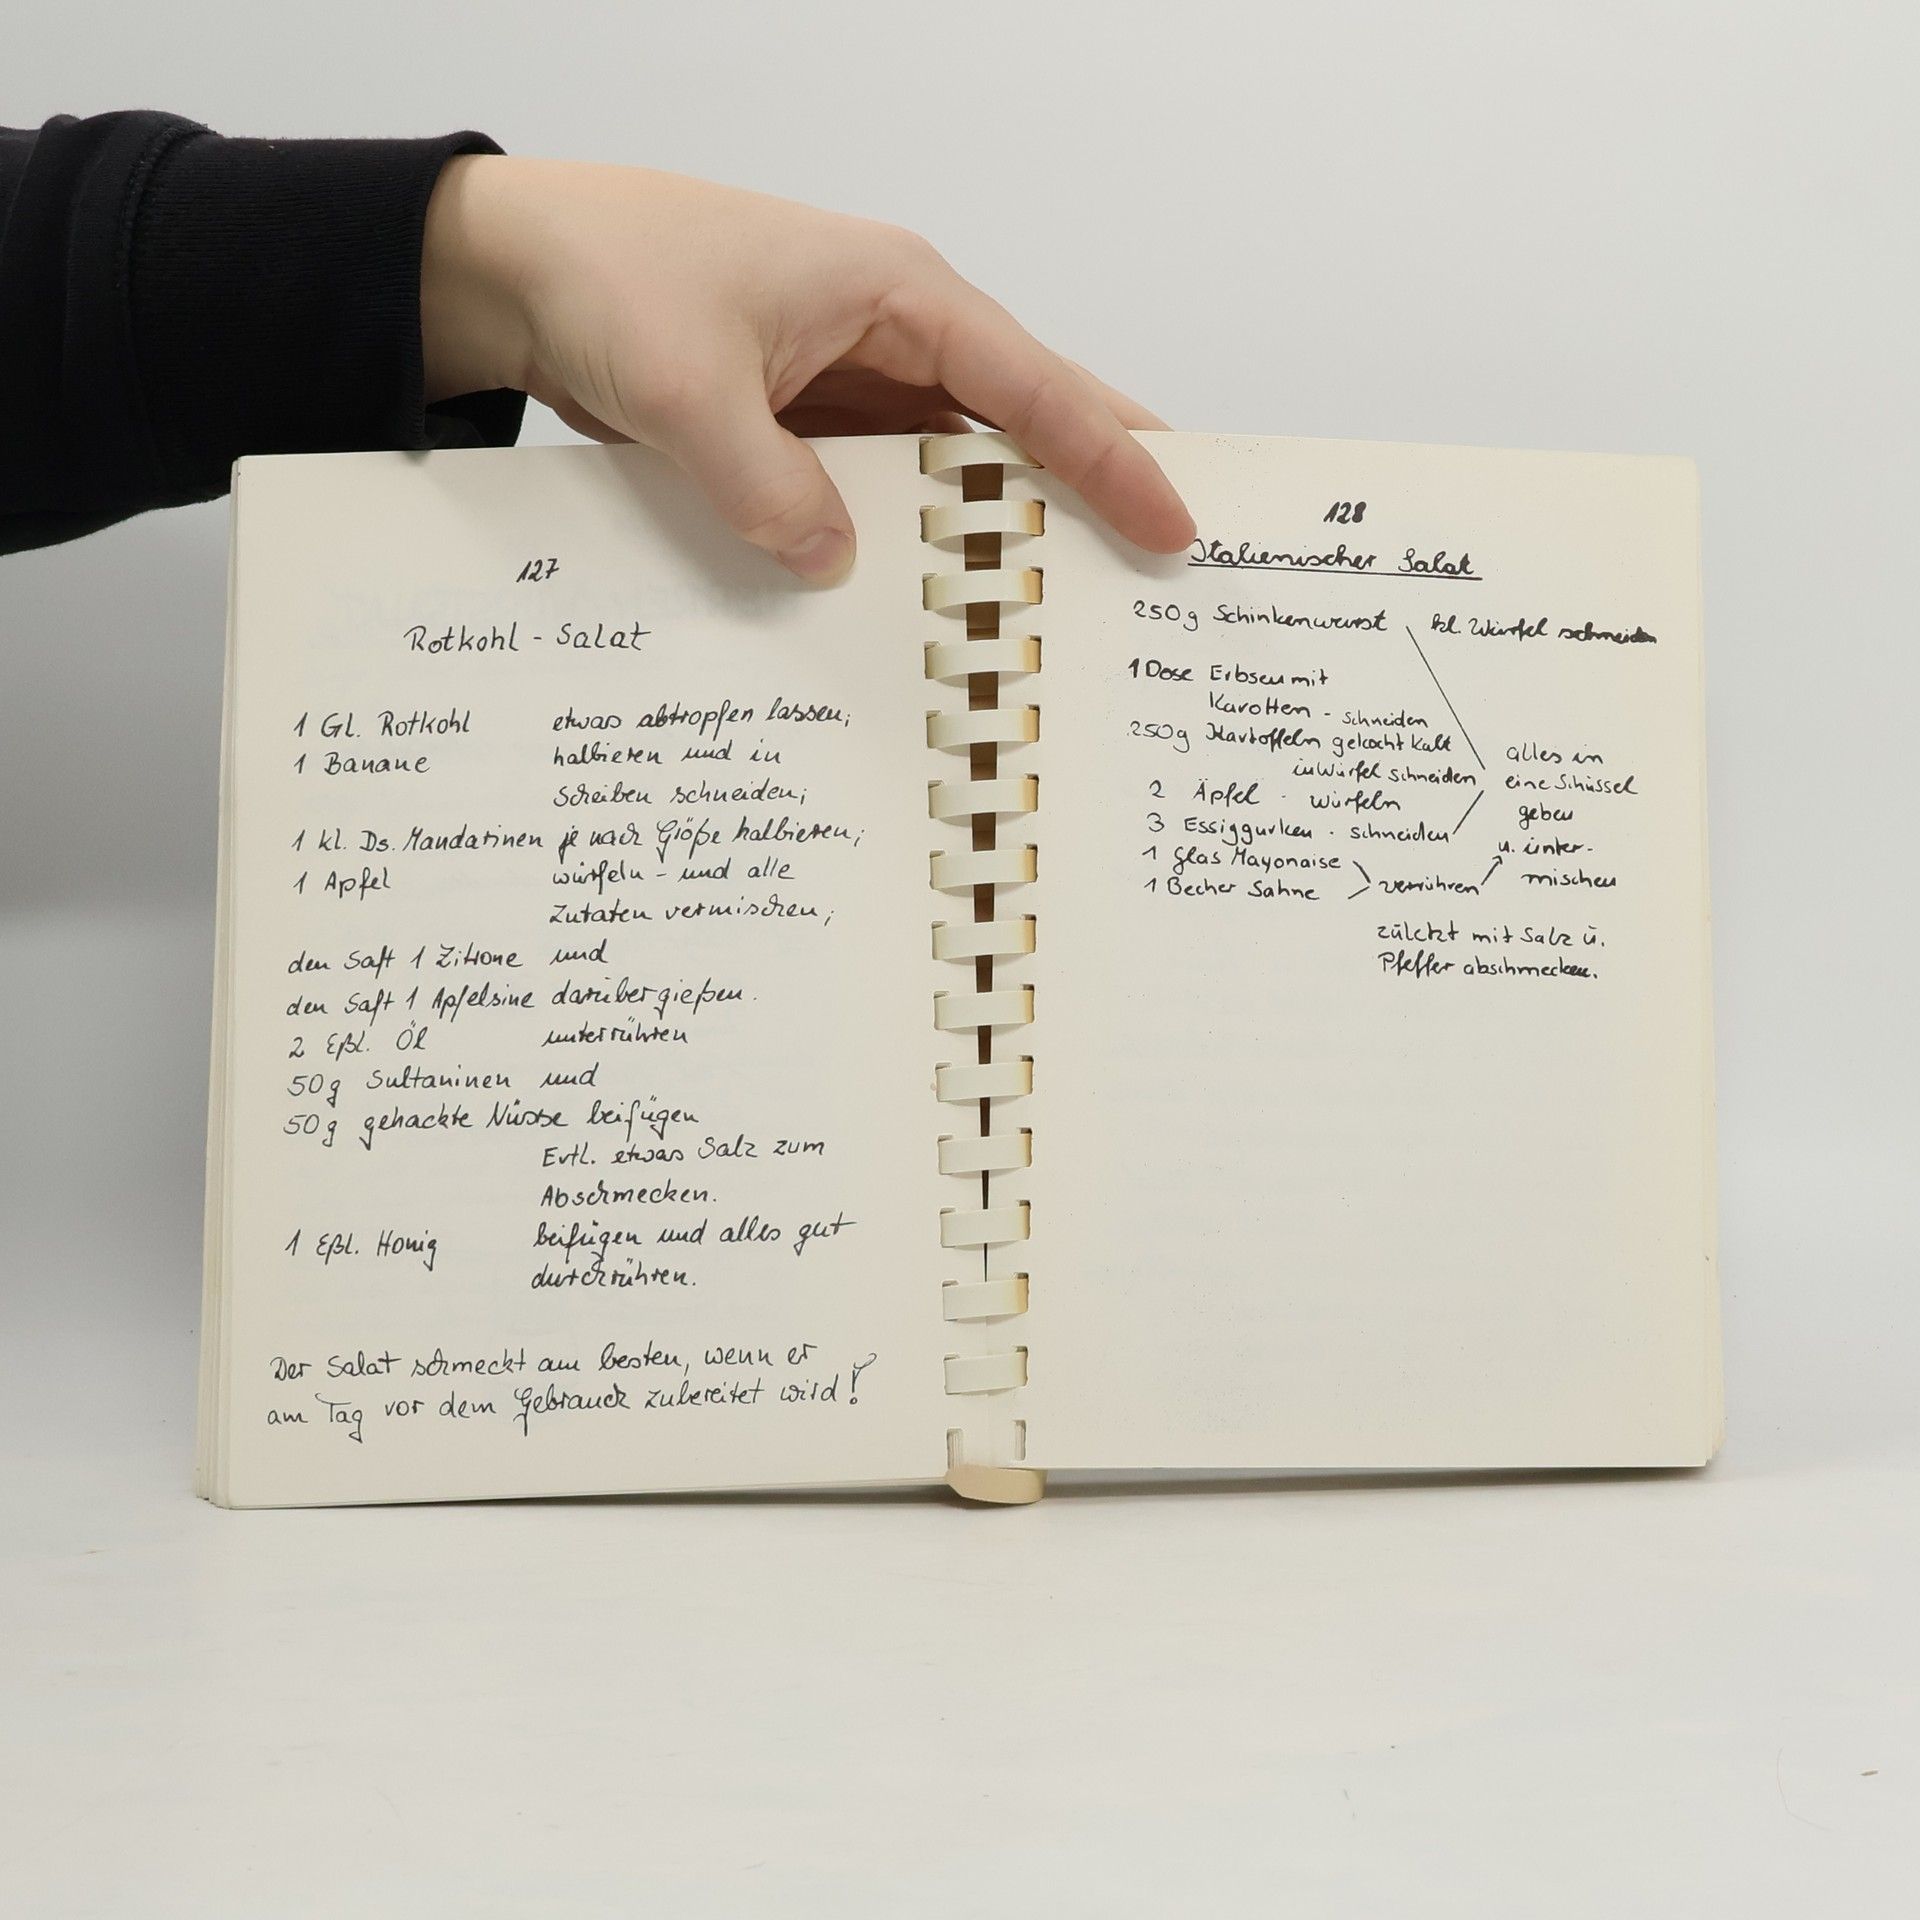 127
Rotkohl - Salat
1 Gl. Rotkohl etwas abtropfen lassen;
1 Banane halbieren und in
Scheiben schneiden;
1 kl. Ds. Mandarinen je nach Größe halbieren;
1 Apfel würfeln - und alle
Zutaten vermischen;
den Saft 1 Zitrone und
den Saft 1 Apfelsine darüber gießen.
2 Eßl. Öl unterrühren
50g Sultaninen und
50g gehackte Nüsse beifügen
Evtl. etwas Salz zum
Abschmecken.
1 Eßl. Honig beifügen und alles gut
durchrühren.
Der Salat schmeckt am besten, wenn er
am Tag vor dem Gebrauch zubereitet wird!
128
Italienischer Salat
250g Schinkenwurst kl. Würfel schneiden
1 Dose Erbsen mit
Karotten - schneiden
250g Kartoffeln gekocht kalt
in Würfel schneiden
2 Äpfel - würfeln
3 Essiggurken - schneiden
1 Glas Mayonaise
1 Becher Sahne verrühren
alles in
eine Schüssel
geben
u. unter-
mischen
zuletzt mit Salz u.
Pfeffer abschmecken.